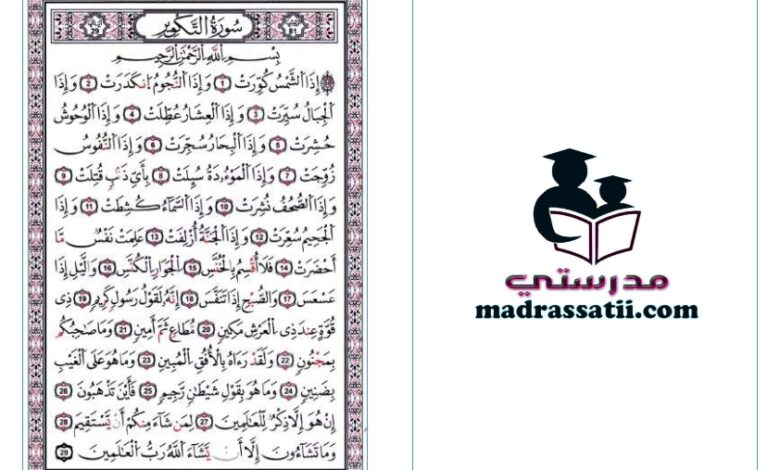 سُورَةُ التَّكْوِيرِ
29
81
بِسْمِ اللَّهِ الرَّحْمَٰنِ الرَّحِيمِ
إِذَا الشَّمْسُ كُوِّرَتْ 1 وَإِذَا النُّجُومُ انكَدَرَتْ 2 وَإِذَا
الْجِبَالُ سُيِّرَتْ 3 وَإِذَا الْعِشَارُ عُطِّلَتْ 4 وَإِذَا الْوُحُوشُ
حُشِرَتْ 5 وَإِذَا الْبِحَارُ سُجِّرَتْ 6 وَإِذَا النُّفُوسُ
زُوِّجَتْ 7 وَإِذَا الْمَوْءُۥدَةُ سُئِلَتْ 8 بِأَيِّ ذَنۢبٍ قُتِلَتْ 9
وَإِذَا الصُّحُفُ نُشِرَتْ 10 وَإِذَا السَّمَآءُ كُشِطَتْ 11 وَإِذَا
الْجَحِيمُ سُعِّرَتْ 12 وَإِذَا الْجَنَّةُ أُزْلِفَتْ 13 عَلِمَتْ نَفْسٌ مَّا
أَحْضَرَتْ 14 فَلَا أُقْسِمُ بِالْخُنَّسِ 15 الْجَوَارِ الْكُنَّسِ 16 وَالَّيْلِ إِذَا
عَسْعَسَ 17 وَالصُّبْحِ إِذَا تَنَفَّسَ 18 إِنَّهُۥ لَقَوْلُ رَسُولٍ كَرِيمٍ 19 ذِى
قُوَّةٍ عِندَ ذِى الْعَرْشِ مَكِينٍ 20 مُّطَاعٍ ثَمَّ أَمِينٍ 21 وَمَا صَاحِبُكُم
بِمَجْنُونٍ 22 وَلَقَدْ رَءَاهُ بِالْأُفُقِ الْمُبِينِ 23 وَمَا هُوَ عَلَى الْغَيْبِ
بِضَنِينٍ 24 وَمَا هُوَ بِقَوْلِ شَيْطَٰنٍ رَّجِيمٍ 25 فَأَيْنَ تَذْهَبُونَ 26
إِنْ هُوَ إِلَّا ذِكْرٌ لِّلْعَالَمِينَ 27 لِمَن شَآءَ مِنكُمْ أَن يَسْتَقِيمَ 28
وَمَا تَشَآءُونَ إِلَّا أَن يَشَآءَ اللَّهُ رَبُّ الْعَالَمِينَ 29
مدرستي
madrassatii.com